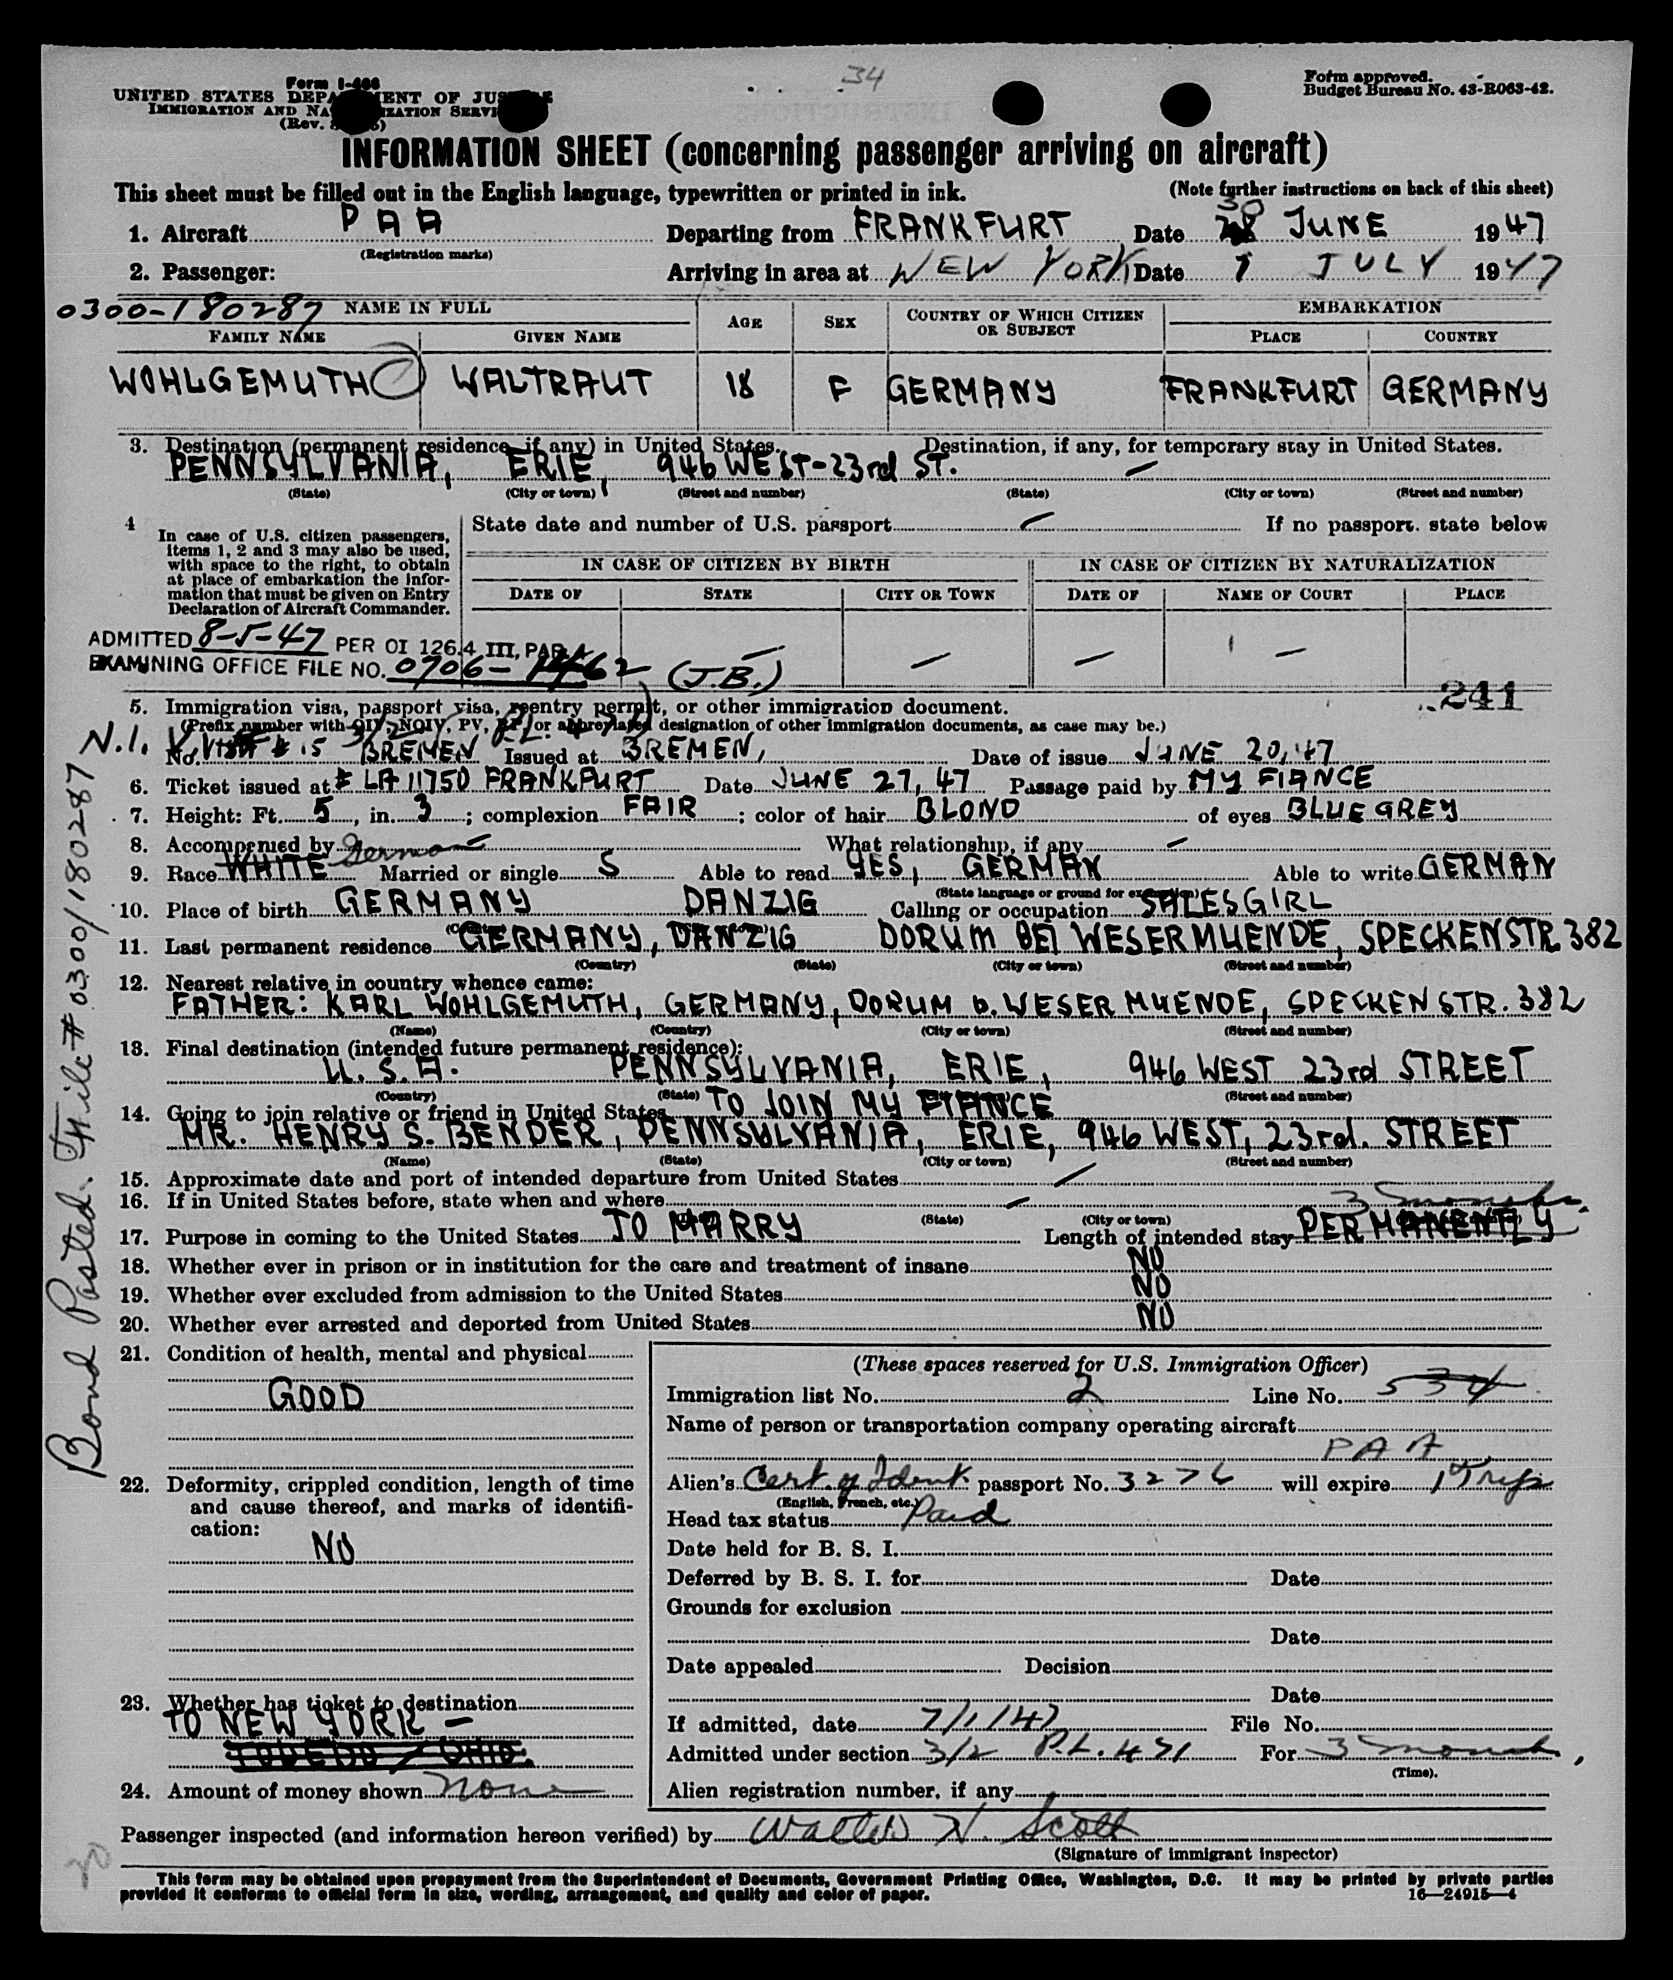 34
Form I-466
UNITED STATES DEPARTMENT OF JUSTICE
IMMIGRATION AND NATURALIZATION SERVICE
(Rev.
Form approved.
Budget Bureau No. 43-R063-42.
INFORMATION SHEET (concerning passenger arriving on aircraft)
This sheet must be filled out in the English language, typewritten or printed in ink.
(Note further instructions on back of this sheet)
1. Aircraft PAA Departing from FRANKFURT Date 30 JUNE 1947
(Registration marks)
2. Passenger: Arriving in area at NEW YORK Date 1 JULY 1947
0300-180287 NAME IN FULL
AGE SEX COUNTRY OF WHICH CITIZEN OR SUBJECT EMBARKATION
FAMILY NAME GIVEN NAME PLACE COUNTRY
WOHLGEMUTH WALTRAUT 18 F GERMANY FRANKFURT GERMANY
3. Destination (permanent residence, if any) in United States. Destination, if any, for temporary stay in United States.
PENNSYLVANIA, ERIE, 946 WEST-23rd ST. —
(State) (City or town) (Street and number) (State) (City or town) (Street and number)
4 In case of U.S. citizen passengers, items 1, 2 and 3 may also be used, with space to the right, to obtain at place of embarkation the information that must be given on Entry Declaration of Aircraft Commander.
State date and number of U.S. passport — If no passport, state below
IN CASE OF CITIZEN BY BIRTH IN CASE OF CITIZEN BY NATURALIZATION
DATE OF STATE CITY OR TOWN DATE OF NAME OF COURT PLACE
ADMITTED 8-5-47 PER OI 126.4 III, PAR 4
EXAMINING OFFICE FILE NO. 0706- 62 (J.B.)
241
5. Immigration visa, passport visa, reentry permit, or other immigration document.
(Prefix number with QIV, NQIV, PV, RP, or abbreviated designation of other immigration documents, as case may be.)
N.I. No. V. VISA # 15 BREMEN Issued at BREMEN, Date of issue JUNE 20, 47
6. Ticket issued at # LA 11750 FRANKFURT Date JUNE 27, 47 Passage paid by MY FIANCE
7. Height: Ft. 5, in. 3; complexion FAIR; color of hair BLOND of eyes BLUE GREY
8. Accompanied by — What relationship, if any —
9. Race WHITE German Married or single S Able to read YES, GERMAN Able to write GERMAN
(State language or ground for exemption)
10. Place of birth GERMANY DANZIG Calling or occupation SALESGIRL
11. Last permanent residence GERMANY, DANZIG DORUM BEI WESERMUENDE, SPECKENSTR 382
(Country) (State) (City or town) (Street and number)
12. Nearest relative in country whence came:
FATHER: KARL WOHLGEMUTH, GERMANY, DORUM b. WESERMUENDE, SPECKENSTR. 382
(Name) (Country) (City or town) (Street and number)
13. Final destination (intended future permanent residence):
U.S.A. PENNSYLVANIA, ERIE, 946 WEST 23rd STREET
(Country) (State) (Street and number)
14. Going to join relative or friend in United States TO JOIN MY FIANCE
MR. HENRY S. BENDER, PENNSYLVANIA, ERIE, 946 WEST, 23rd. STREET
(Name) (State) (City or town) (Street and number)
15. Approximate date and port of intended departure from United States —
16. If in United States before, state when and where —
(State) (City or town)
3 months.
17. Purpose in coming to the United States TO MARRY Length of intended stay PERMANENTLY
18. Whether ever in prison or in institution for the care and treatment of insane NO
19. Whether ever excluded from admission to the United States NO
20. Whether ever arrested and deported from United States NO
21. Condition of health, mental and physical
GOOD
22. Deformity, crippled condition, length of time and cause thereof, and marks of identification:
NO
23. Whether has ticket to destination
TO NEW YORK —
TOLEDO / OHIO.
24. Amount of money shown none
(These spaces reserved for U.S. Immigration Officer)
Immigration list No. 2 Line No. 5 34
Name of person or transportation company operating aircraft
PAA
Alien's Cert. of Ident. passport No. 3276 will expire 1 Trip
(English, French, etc.)
Head tax status Paid
Date held for B. S. I.
Deferred by B. S. I. for Date
Grounds for exclusion
Date
Date appealed Decision
Date
If admitted, date 7/1/47 File No.
Admitted under section 3/2 P.L. 471 For 3 months,
(Time).
Alien registration number, if any
Passenger inspected (and information hereon verified) by Walter N. Scott
(Signature of immigrant inspector)
This form may be obtained upon prepayment from the Superintendent of Documents, Government Printing Office, Washington, D.C. It may be printed by private parties
provided it conforms to official form in size, wording, arrangement, and quality and color of paper. 16—24915—4
Bond Posted. File # 0300/180287
20